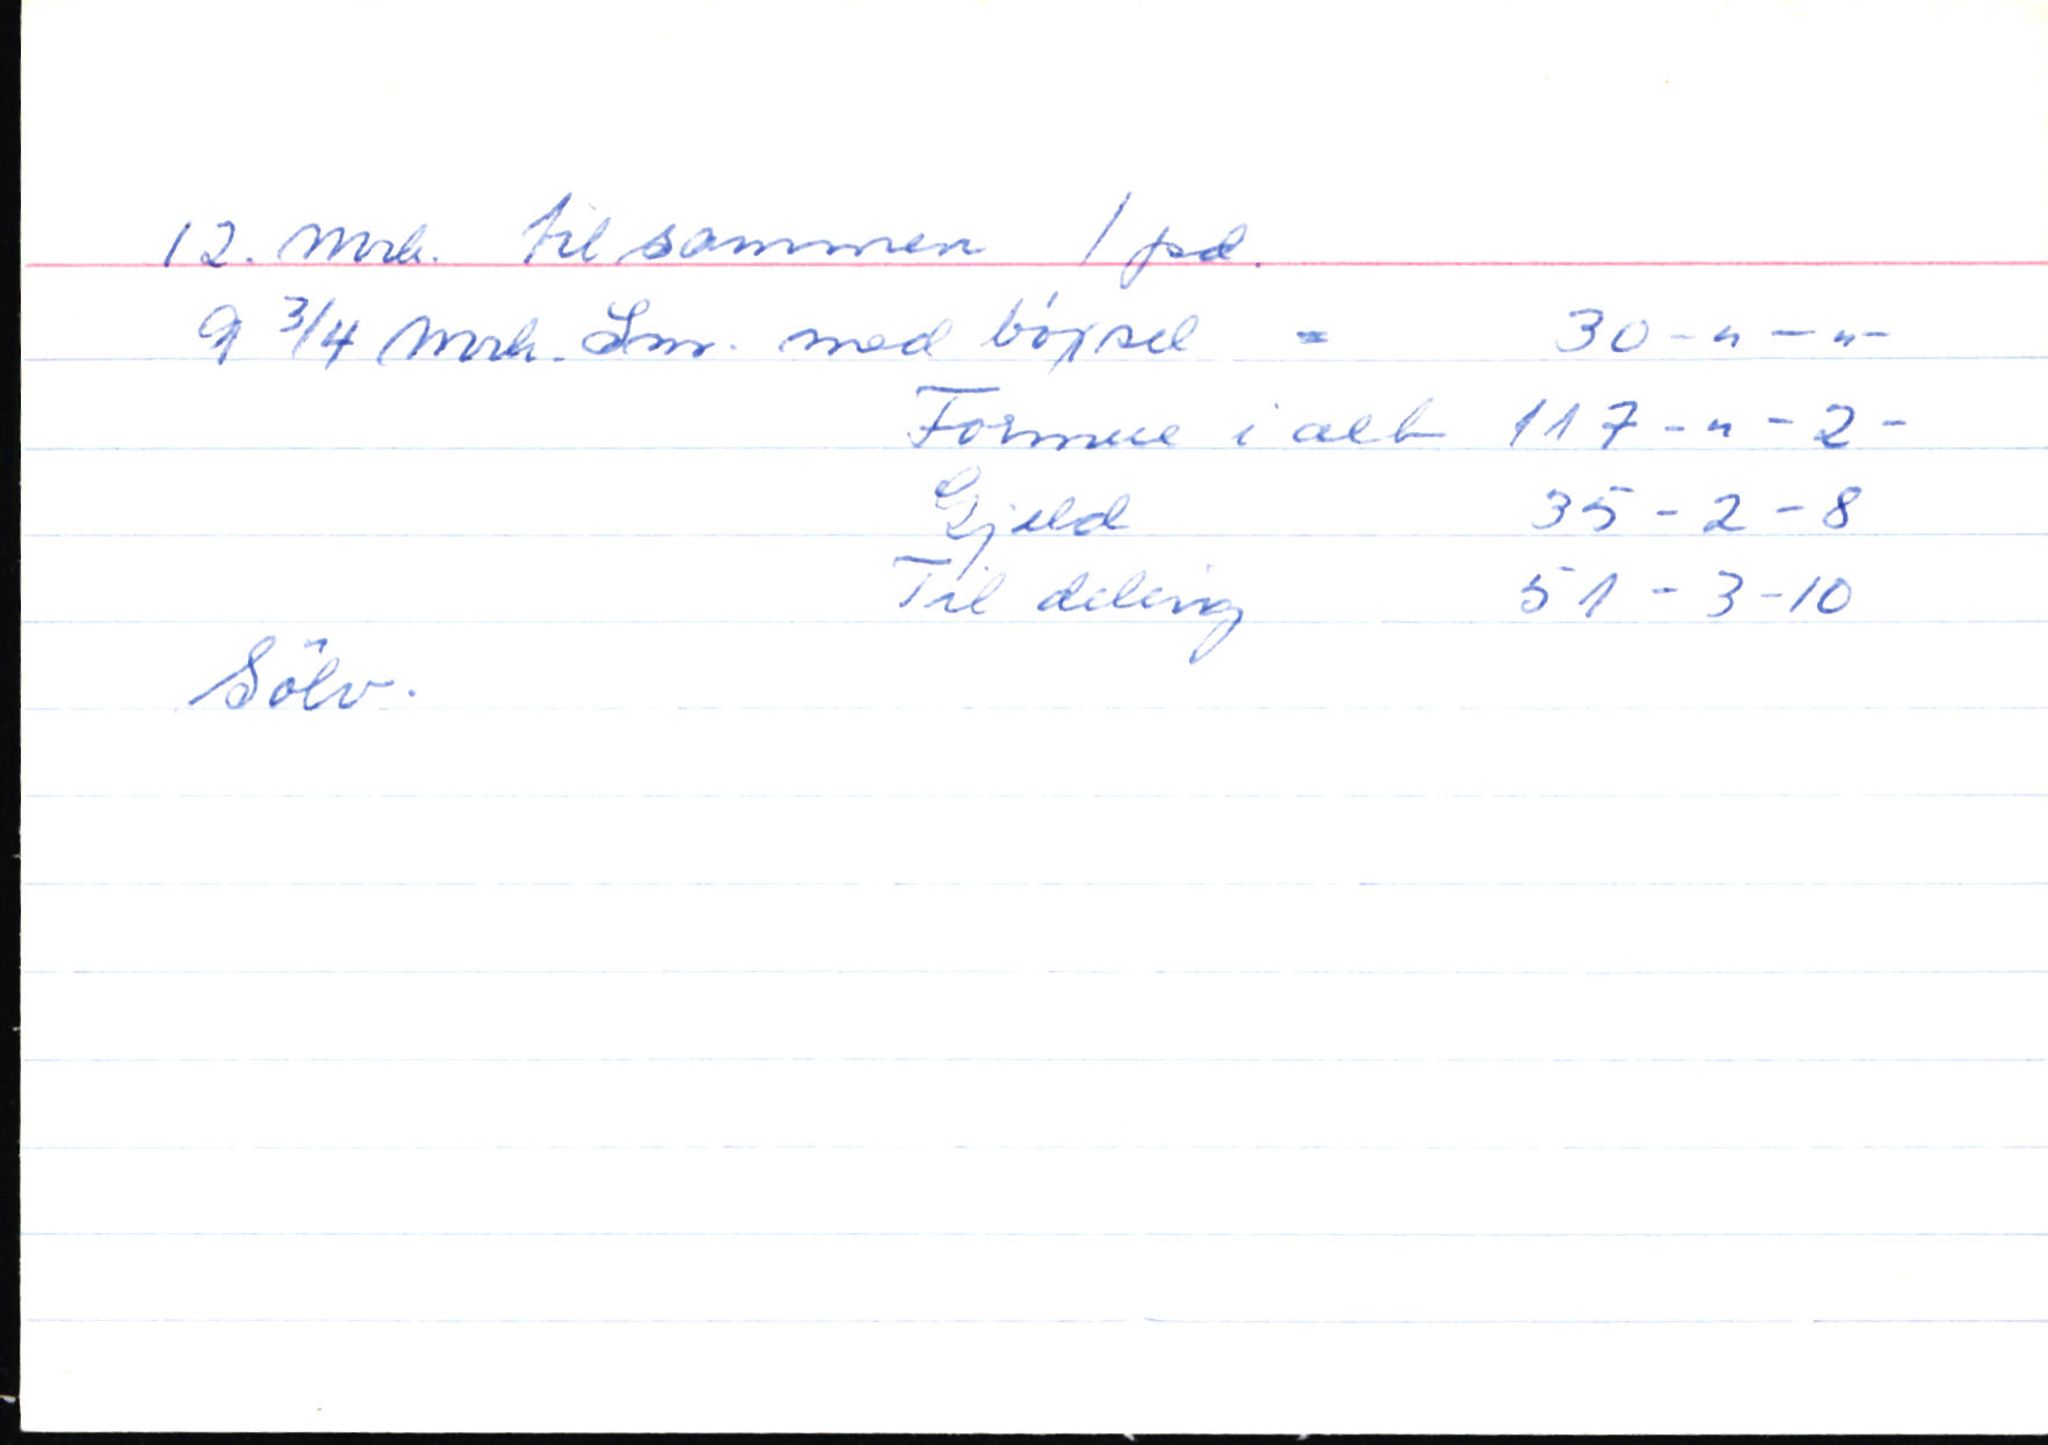 12. Mrk. til sammen 1 pd.
9 3/4 Mrk. Smr. med bóxsel = 30-"-"-
Formue i alt 117-"-2-
Gjeld 35-2-8
Til deling 51-3-10
Sölv.